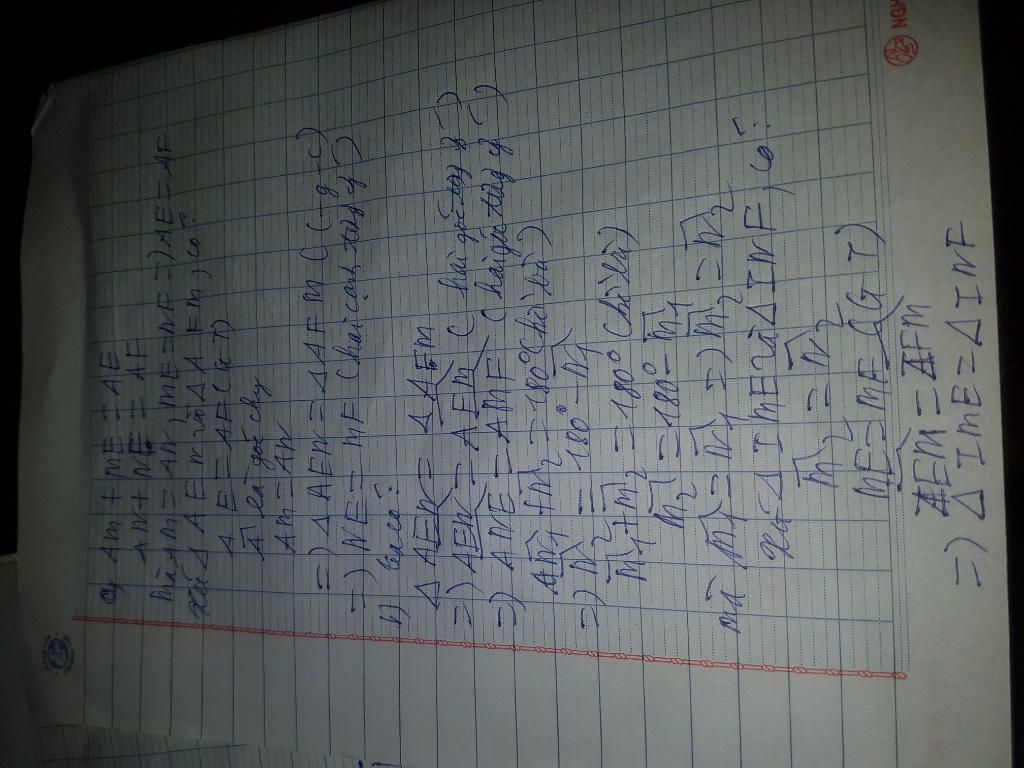 a) AM + ME = AE
AN + NF = AF
mà AM = AN, ME = NF =) AE = AF
Xét Δ AEN và Δ AFM, có:
AE = AF (cmt)
Â là góc chung
AM = AN
=) Δ AEN = Δ AFM (c-g-c)
=) NE = MF (hai cạnh tương ứ)
b) Ta có:
Δ AEN = Δ AFM
=) AEN = AFM (hai góc tương ứ)
=) ANE = AMF (hai góc tương ứ)
N1 + N2 = 180° (hai kề bù)
=) N2 = 180° - N1
M1 + M2 = 180° (kề bù)
M2 = 180° - M1
mà M1 = N1 =) M2 = N2
Xét Δ IME và Δ INF, có:
M2 = N2
ME = NF (GT)
AEM = AFM
=) Δ IME = Δ INF
NGH